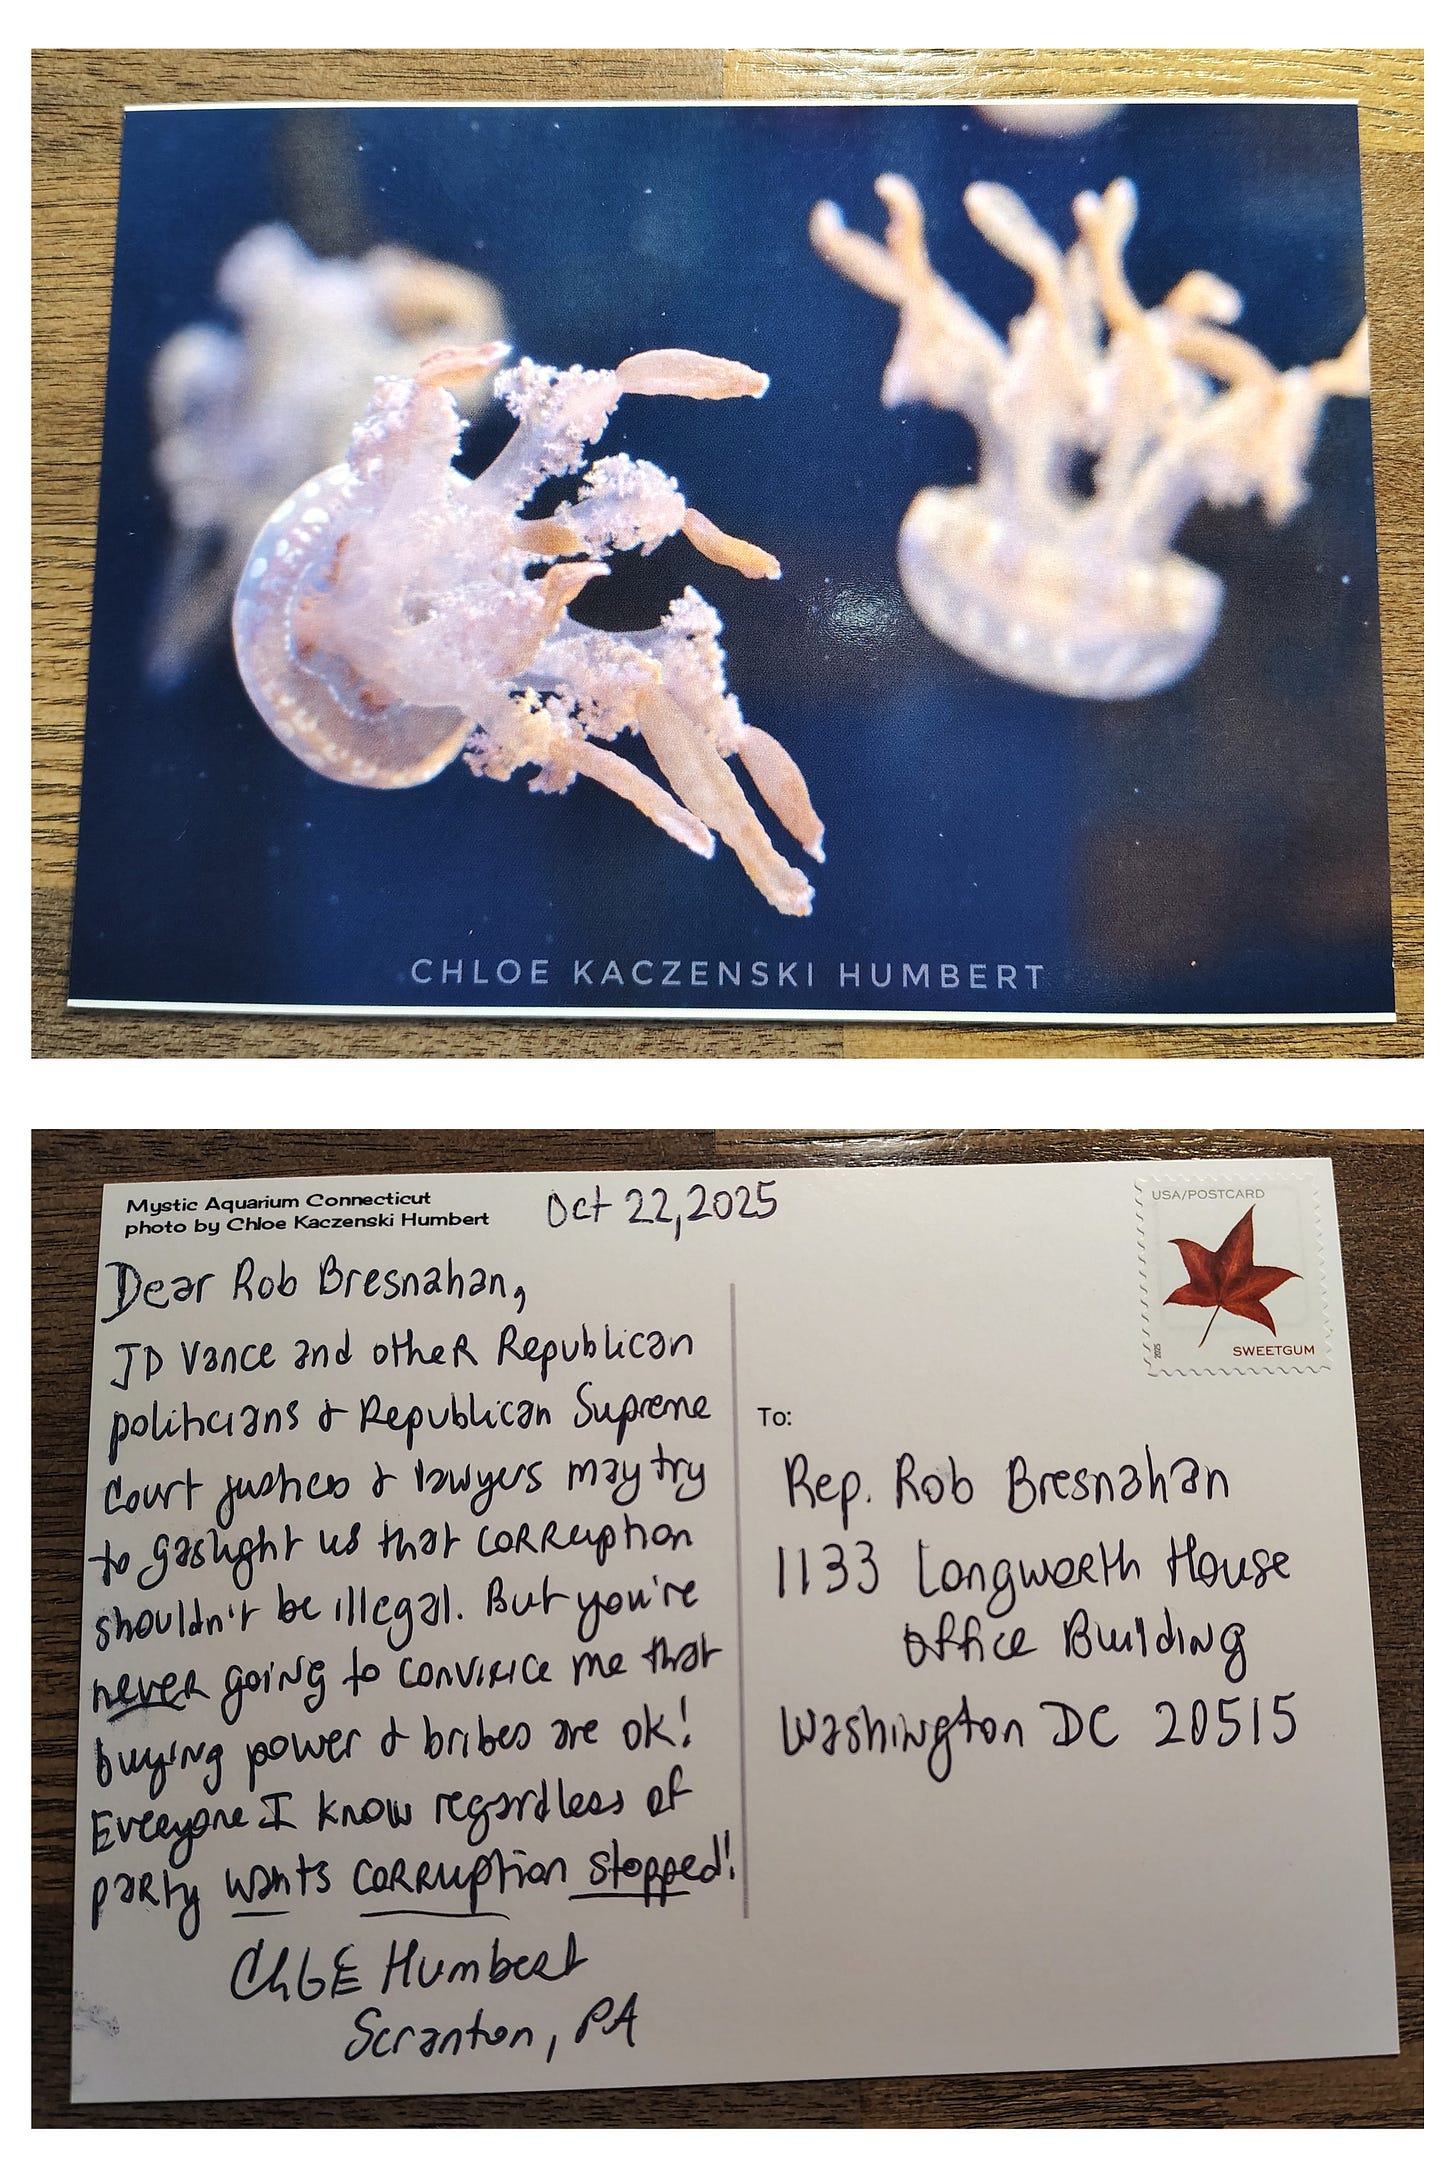 CHLOE KACZENSKI HUMBERT
Mystic Aquarium Connecticut
photo by Chloe Kaczenski Humbert
Oct 22, 2025
USA/POSTCARD
2025
SWEETGUM
Dear Rob Bresnahan,
JD Vance and other Republican
politicians & Republican Supreme
Court justices & lawyers may try
to gaslight us that corruption
shouldn't be illegal. But you're
never going to convince me that
buying power & bribes are ok!
Everyone I know regardless of
party wants corruption stopped!
Chloe Humbert
Scranton, PA
To:
Rep. Rob Bresnahan
1133 Longworth House
Office Building
Washington DC 20515